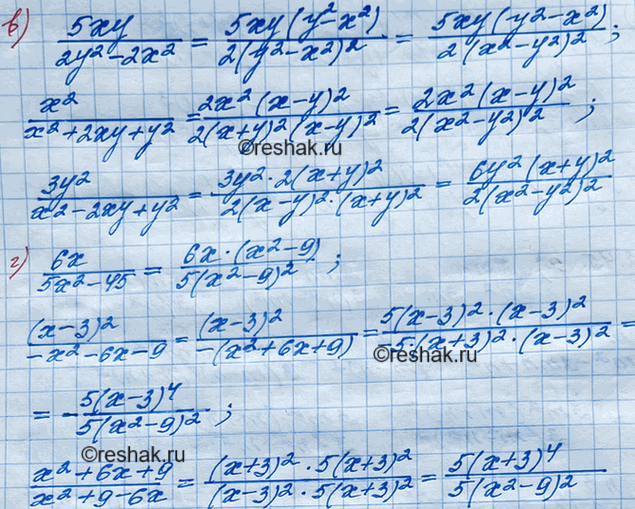 в) 5xy/(2y²-2x²) = 5xy(y²-x²)/(2(y²-x²)²) = 5xy(y²-x²)/(2(x²-y²)²);
x²/(x²+2xy+y²) = 2x²(x-y)²/(2(x+y)²(x-y)²) = 2x²(x-y)²/(2(x²-y²)²);
©reshak.ru
3y²/(x²-2xy+y²) = 3y²·2(x+y)²/(2(x-y)²·(x+y)²) = 6y²(x+y)²/(2(x²-y²)²)
г) 6x/(5x²-45) = 6x·(x²-9)/(5(x²-9)²);
(x-3)²/(-x²-6x-9) = (x-3)²/(-(x²+6x+9)) = 5(x-3)²·(x-3)²/(-5·(x+3)²·(x-3)²) =
©reshak.ru
= -5(x-3)⁴/(5(x²-9)²);
©reshak.ru
(x²+6x+9)/(x²+9-6x) = (x+3)²·5(x+3)²/((x-3)²·5(x+3)²) = 5(x+3)⁴/(5(x²-9)²)